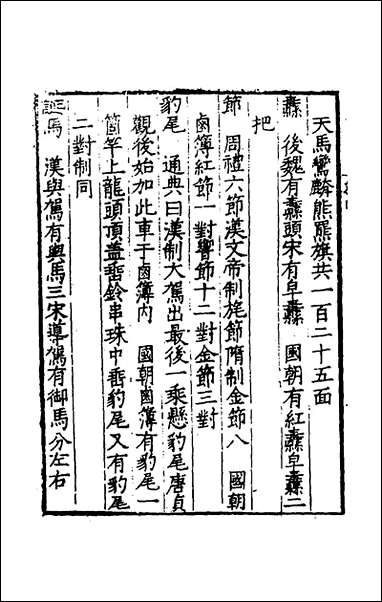 天馬鸞麟熊羆旗共一百二十五面
纛　後魏有纛頭宋有皁纛　國朝有紅纛皁纛二
把
節　周禮六節漢文帝制旄節隋制金節八　國朝
鹵簿紅節一對響節十二對金節三對
豹尾　通典曰漢制大駕出最後一乘懸豹尾唐貞
觀後始加此車于鹵簿內　國朝鹵簿有豹尾一
箇竿上龍頭頂盖垂鈴串珠中垂豹尾又有豹尾
二對制同
誕馬　漢與駕有輿馬三宋導駕有御馬分左右